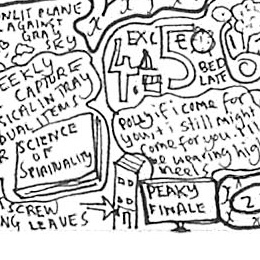 NLIT PLANE
AGAINST
GRAY
SKY
EEKLY
CAPTURE
SICAL IN TRAY
DUAL ITEMS
SCIENCE
OF
SPIRITUALITY
SCREW
NG LEAVES
EXC
BED
LATE
POLLY: if i come for
you, i still might
come for you. I'll
be wearing hig
heels
PEAKY
FINALE
2